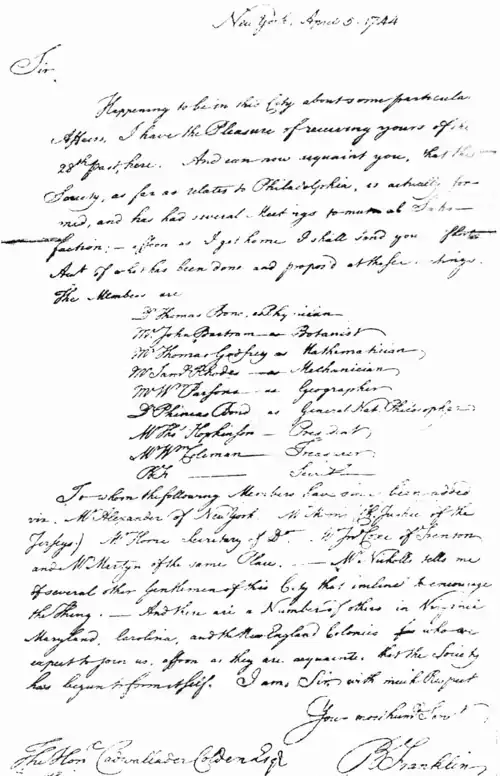 New York, April 5. 1744
Sir
Happening to be in this City about some particular
Affairs, I have the Pleasure of receiving yours of the
28th past, here. And can now acquaint you, that the
Society, as far as relates to Philadelphia, is actually for-
med, and has had several Meetings to mutual Satis-
faction; — assoon as I get home I shall send you a short
Acct of what has been done and propos'd at these
The Members are
Dr Thomas Bond, as Physician
Mr John Bartram as Botanist
Mr Thomas Godfrey as Mathematician
Mr Saml Rhodes as Mechanician
Mr Wm Parsons as Geographer
Dr Phineas Bond as General Nat. Philosopher
Mr Thos Hopkinson — President
Mr Wm Coleman — Treasurer
BF —
To whom the following Members have since been added
viz. Mr Alexander of New York. Mr Chf Justice of the
Jerseys; Mr Home Secretary of Do Mr Jno Coxe of Trenton
and Mr Martyn of the same Place. — Mr Nicholls tells me
of several other Gentlemen of this City that incline to encourage
the Thing. — And there are a Number of others in Virginia
Maryland, Carolina, and the New England Colonies who we
expect to join us, assoon as they are acquainted that the Society
has begun to form itself. I am, Sir, with much Respect
Your most humb Servt
The Honl Cadwallader Colden Esqr B Franklin